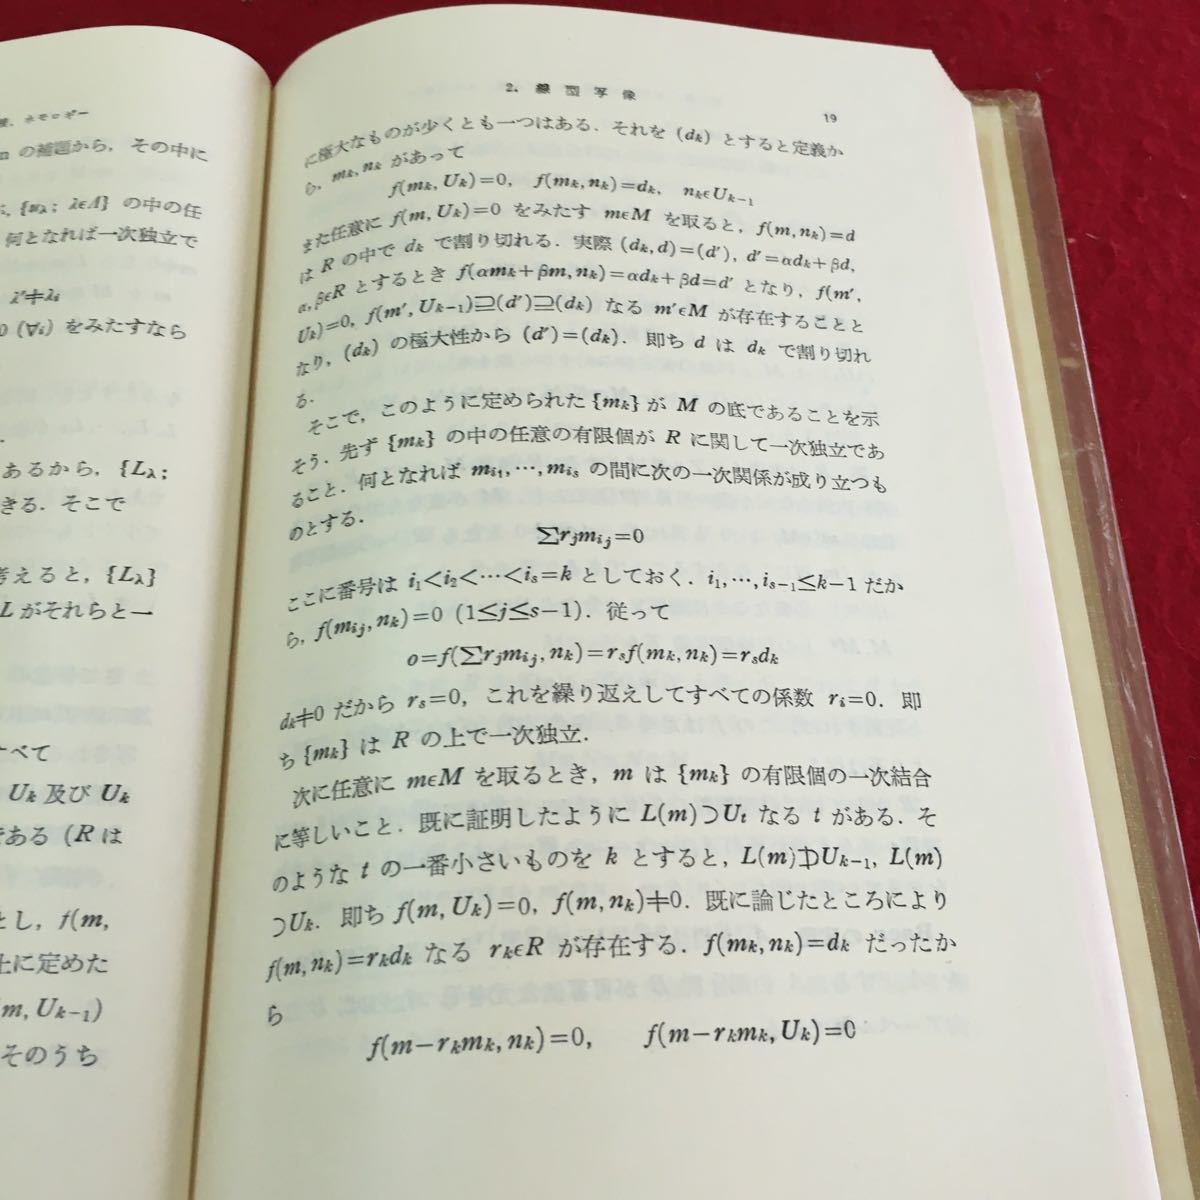 ネモロギー
の補題から，その中に
{u_λ; λ∈Λ} の中の任
何となれば一次独立で
λ'≠λ_i
0 (∀i) をみたすなら
あるから，{L_λ;
きる．そこで
考えると，{L_λ}
L がそれらと一
べて
U_k 及び U_k
である (R は
とし，f(m,
上に定めた
(m, U_{k-1})
そのうち
2. 線型写像
19
に極大なものが少くとも一つはある．それを (d_k) とすると定義か
ら，m_k, n_k があって
f(m_k, U_k)=0, f(m_k, n_k)=d_k, n_k∈U_{k-1}
また任意に f(m, U_k)=0 をみたす m∈M を取ると，f(m, n_k)=d
は R の中で d_k で割り切れる．実際 (d_k, d)=(d'), d'=αd_k+βd,
α, β∈R とするとき f(αm_k+βm, n_k)=αd_k+βd=d' となり，f(m',
U_k)=0, f(m', U_{k-1})⊇(d')⊇(d_k) なる m'∈M が存在することと
なり，(d_k) の極大性から (d')=(d_k)．即ち d は d_k で割り切れ
る．
そこで，このように定められた {m_k} が M の底であることを示
そう．先ず {m_k} の中の任意の有限個が R に関して一次独立であ
ること．何となれば m_{i_1}, …, m_{i_s} の間に次の一次関係が成り立つも
のとする．
∑r_j m_{i_j}=0
ここに番号は i_1<i_2<…<i_s=k としておく．i_1, …, i_{s-1}≤k-1 だか
ら，f(m_{i_j}, n_k)=0 (1≤j≤s-1)．従って
o=f(∑r_j m_{i_j}, n_k)=r_s f(m_k, n_k)=r_s d_k
d_k≠0 だから r_s=0，これを繰り返えしてすべての係数 r_i=0．即
ち {m_k} は R の上で一次独立．
次に任意に m∈M を取るとき，m は {m_k} の有限個の一次結合
に等しいこと．既に証明したように L(m)⊃U_t なる t がある．そ
のような t の一番小さいものを k とすると，L(m)⊅U_{k-1}, L(m)
⊃U_k．即ち f(m, U_k)=0, f(m, n_k)≠0．既に論じたところにより
f(m, n_k)=r_k d_k なる r_k∈R が存在する．f(m_k, n_k)=d_k だったか
ら
f(m-r_k m_k, n_k)=0, f(m-r_k m_k, U_k)=0